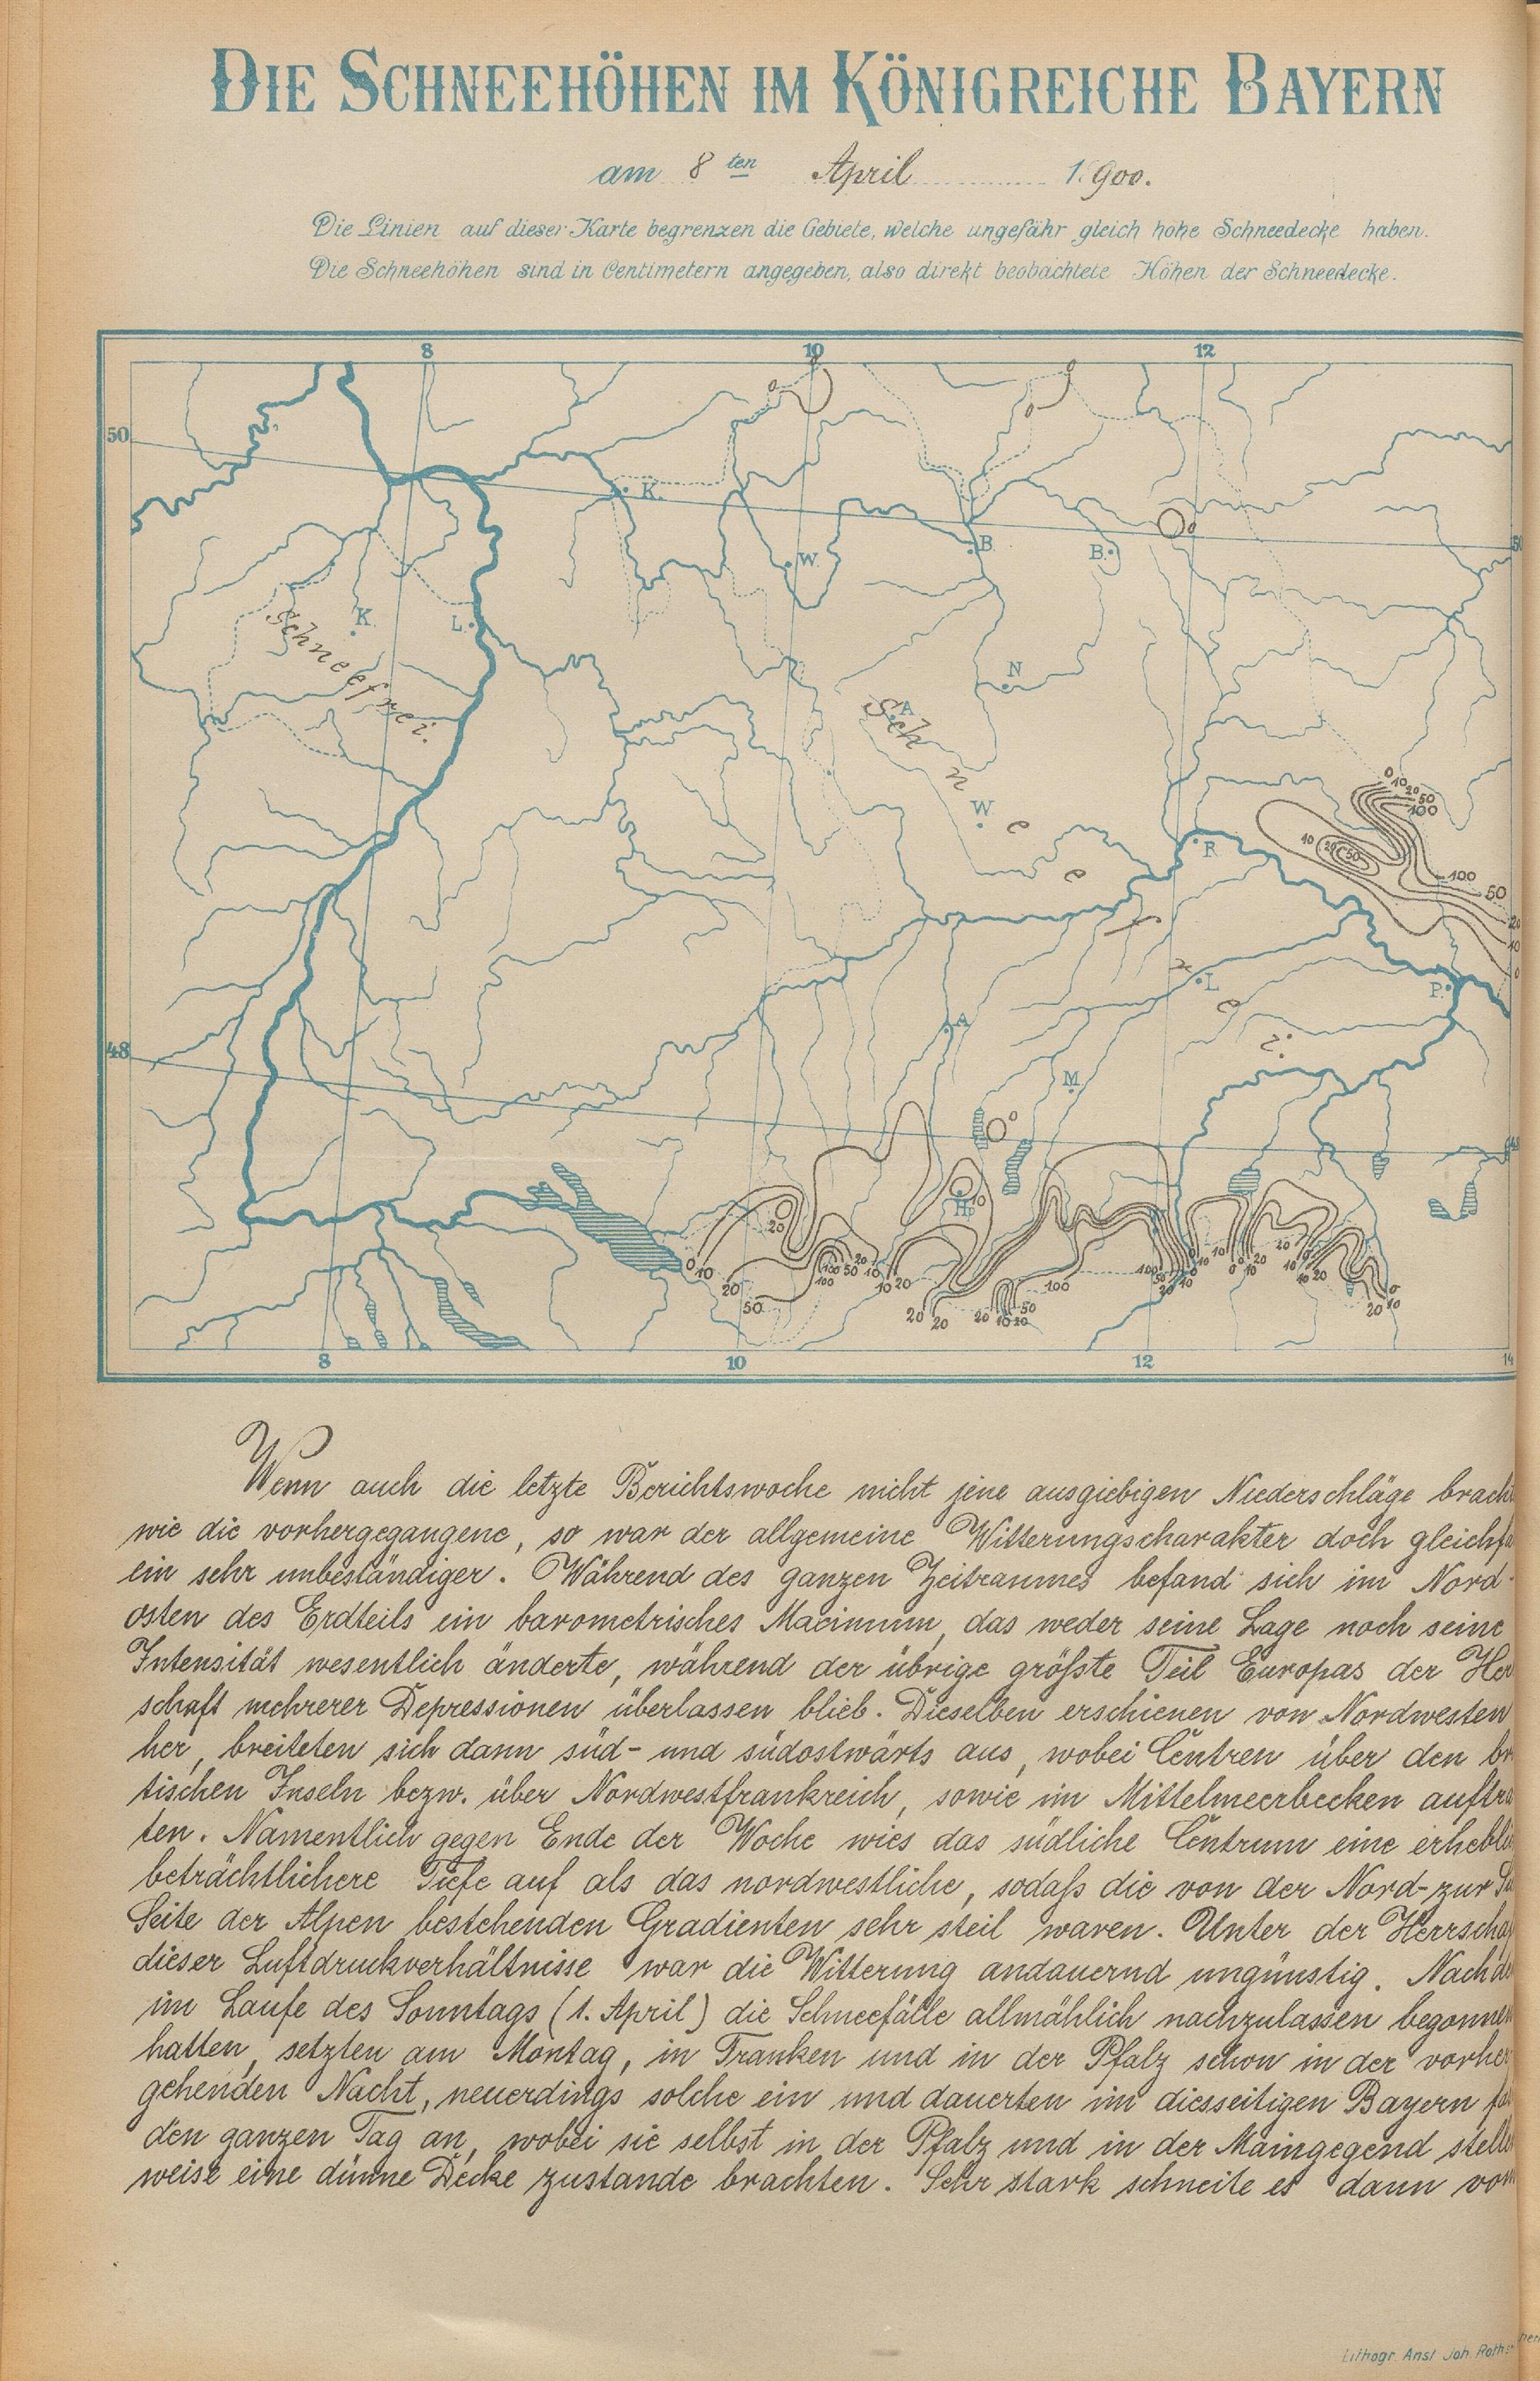 DIE SCHNEEHÖHEN IM KÖNIGREICHE BAYERN
am 8ten April 1900.
Die Linien auf dieser Karte begrenzen die Gebiete, welche ungefähr gleich hohe Schneedecke haben.
Die Schneehöhen sind in Centimetern angegeben, also direkt beobachtete Höhen der Schneedecke.
8 10 12
0 0 0 0
50
K.
W. B. B. 0
50
Schneefrei.
K. L.
N
A
Schneefrei.
W
R
0 10 20 50 100
10 20 50
100 50
20
10
0
L P.
A
48
M
0
48
H. 10
20
0 10 20 50
100 50 20 10
100
10 20
20 20
20 10 20 50
100
100 50 20 10 0
10 10
0 10 20
20 10 0
10 20
20 10 0
8 10 12 14
Wenn auch die letzte Berichtswoche nicht jene ausgiebigen Niederschläge brach
wie die vorhergegangene, so war der allgemeine Witterungscharakter doch gleichfa
ein sehr unbeständiger. Während des ganzen Zeitraumes befand sich im Nord-
osten des Erdteils ein barometrisches Maximum, das weder seine Lage noch seine
Intensität wesentlich änderte, während der übrige größte Teil Europas der Her
schaft mehrerer Depressionen überlassen blieb. Dieselben erschienen von Nordwesten
her, breiteten sich dann süd- und südostwärts aus, wobei Centren über den br
tischen Inseln bezw. über Nordwestfrankreich, sowie im Mittelmeerbecken auftra
ten. Namentlich gegen Ende der Woche wies das südliche Centrum eine erhebli
beträchtlichere Tiefe auf als das nordwestliche, sodaß die von der Nord- zur Sü
Seite der Alpen bestehenden Gradienten sehr steil waren. Unter der Herrscha
dieser Luftdruckverhältnisse war die Witterung andauernd ungünstig. Nachde
im Laufe des Sonntags (1. April) die Schneefälle allmählich nachzulassen begonnen
hatten, setzten am Montag, in Franken und in der Pfalz schon in der vorher
gehenden Nacht, neuerdings solche ein und dauerten im diesseitigen Bayern fa
den ganzen Tag an, wobei sie selbst in der Pfalz und in der Maingegend stelle
weise eine dünne Decke zustande brachten. Sehr stark schneite es dann vom
Lithogr. Anst. Joh. Roth